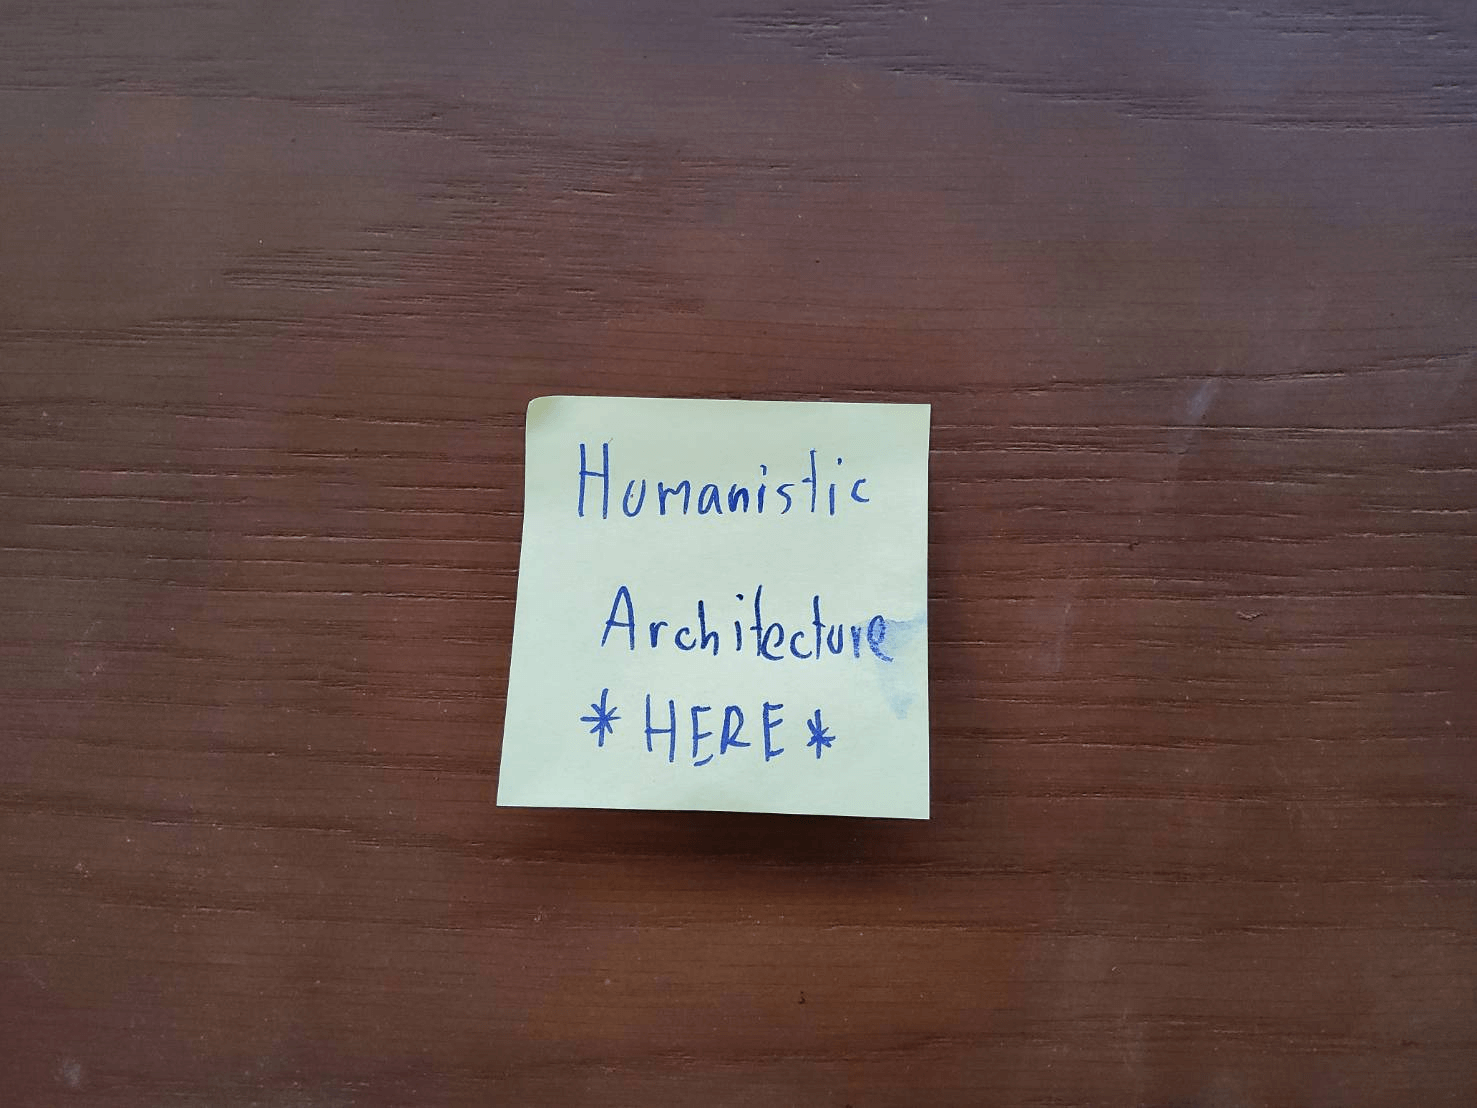 Humanistic
Architecture
* HERE *